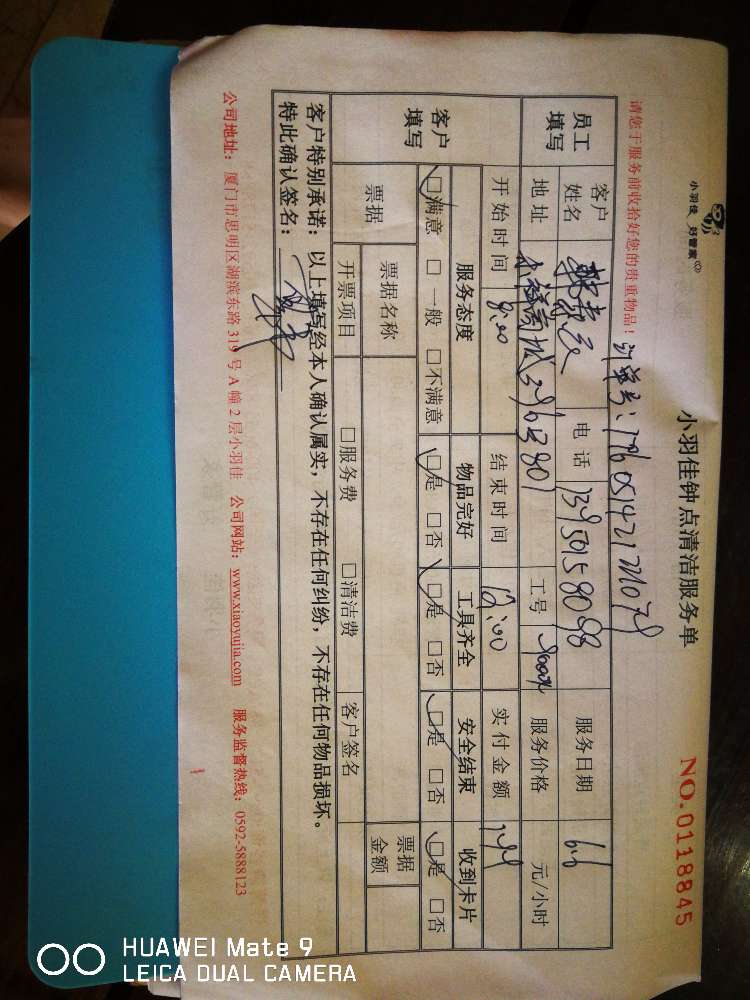 小羽佳 好管家
小羽佳钟点清洁服务单
NO.0118845
请您于服务前收拾好您的贵重物品！
订单号：
员工填写
客户姓名
电话 13950158098
服务日期
地址
3801
工号
服务价格
元/小时
开始时间 9:00
结束时间 12:00
实付金额
客户填写
服务态度
物品完好
工具齐全
安全结束
收到卡片
□满意 □一般 □不满意
□是 □否
□是 □否
□是 □否
□是 □否
票据
票据名称
票据金额
开票项目
□服务费 □清洁费
客户签名
客户特别承诺：以上填写经本人确认属实，不存在任何纠纷，不存在任何物品损坏。
特此确认签名：
公司地址：厦门市思明区湖滨东路 319 号 A 幢 2 层小羽佳 公司网站：www.xiaoyujia.com 服务监督热线：0592-5888123
HUAWEI Mate 9
LEICA DUAL CAMERA